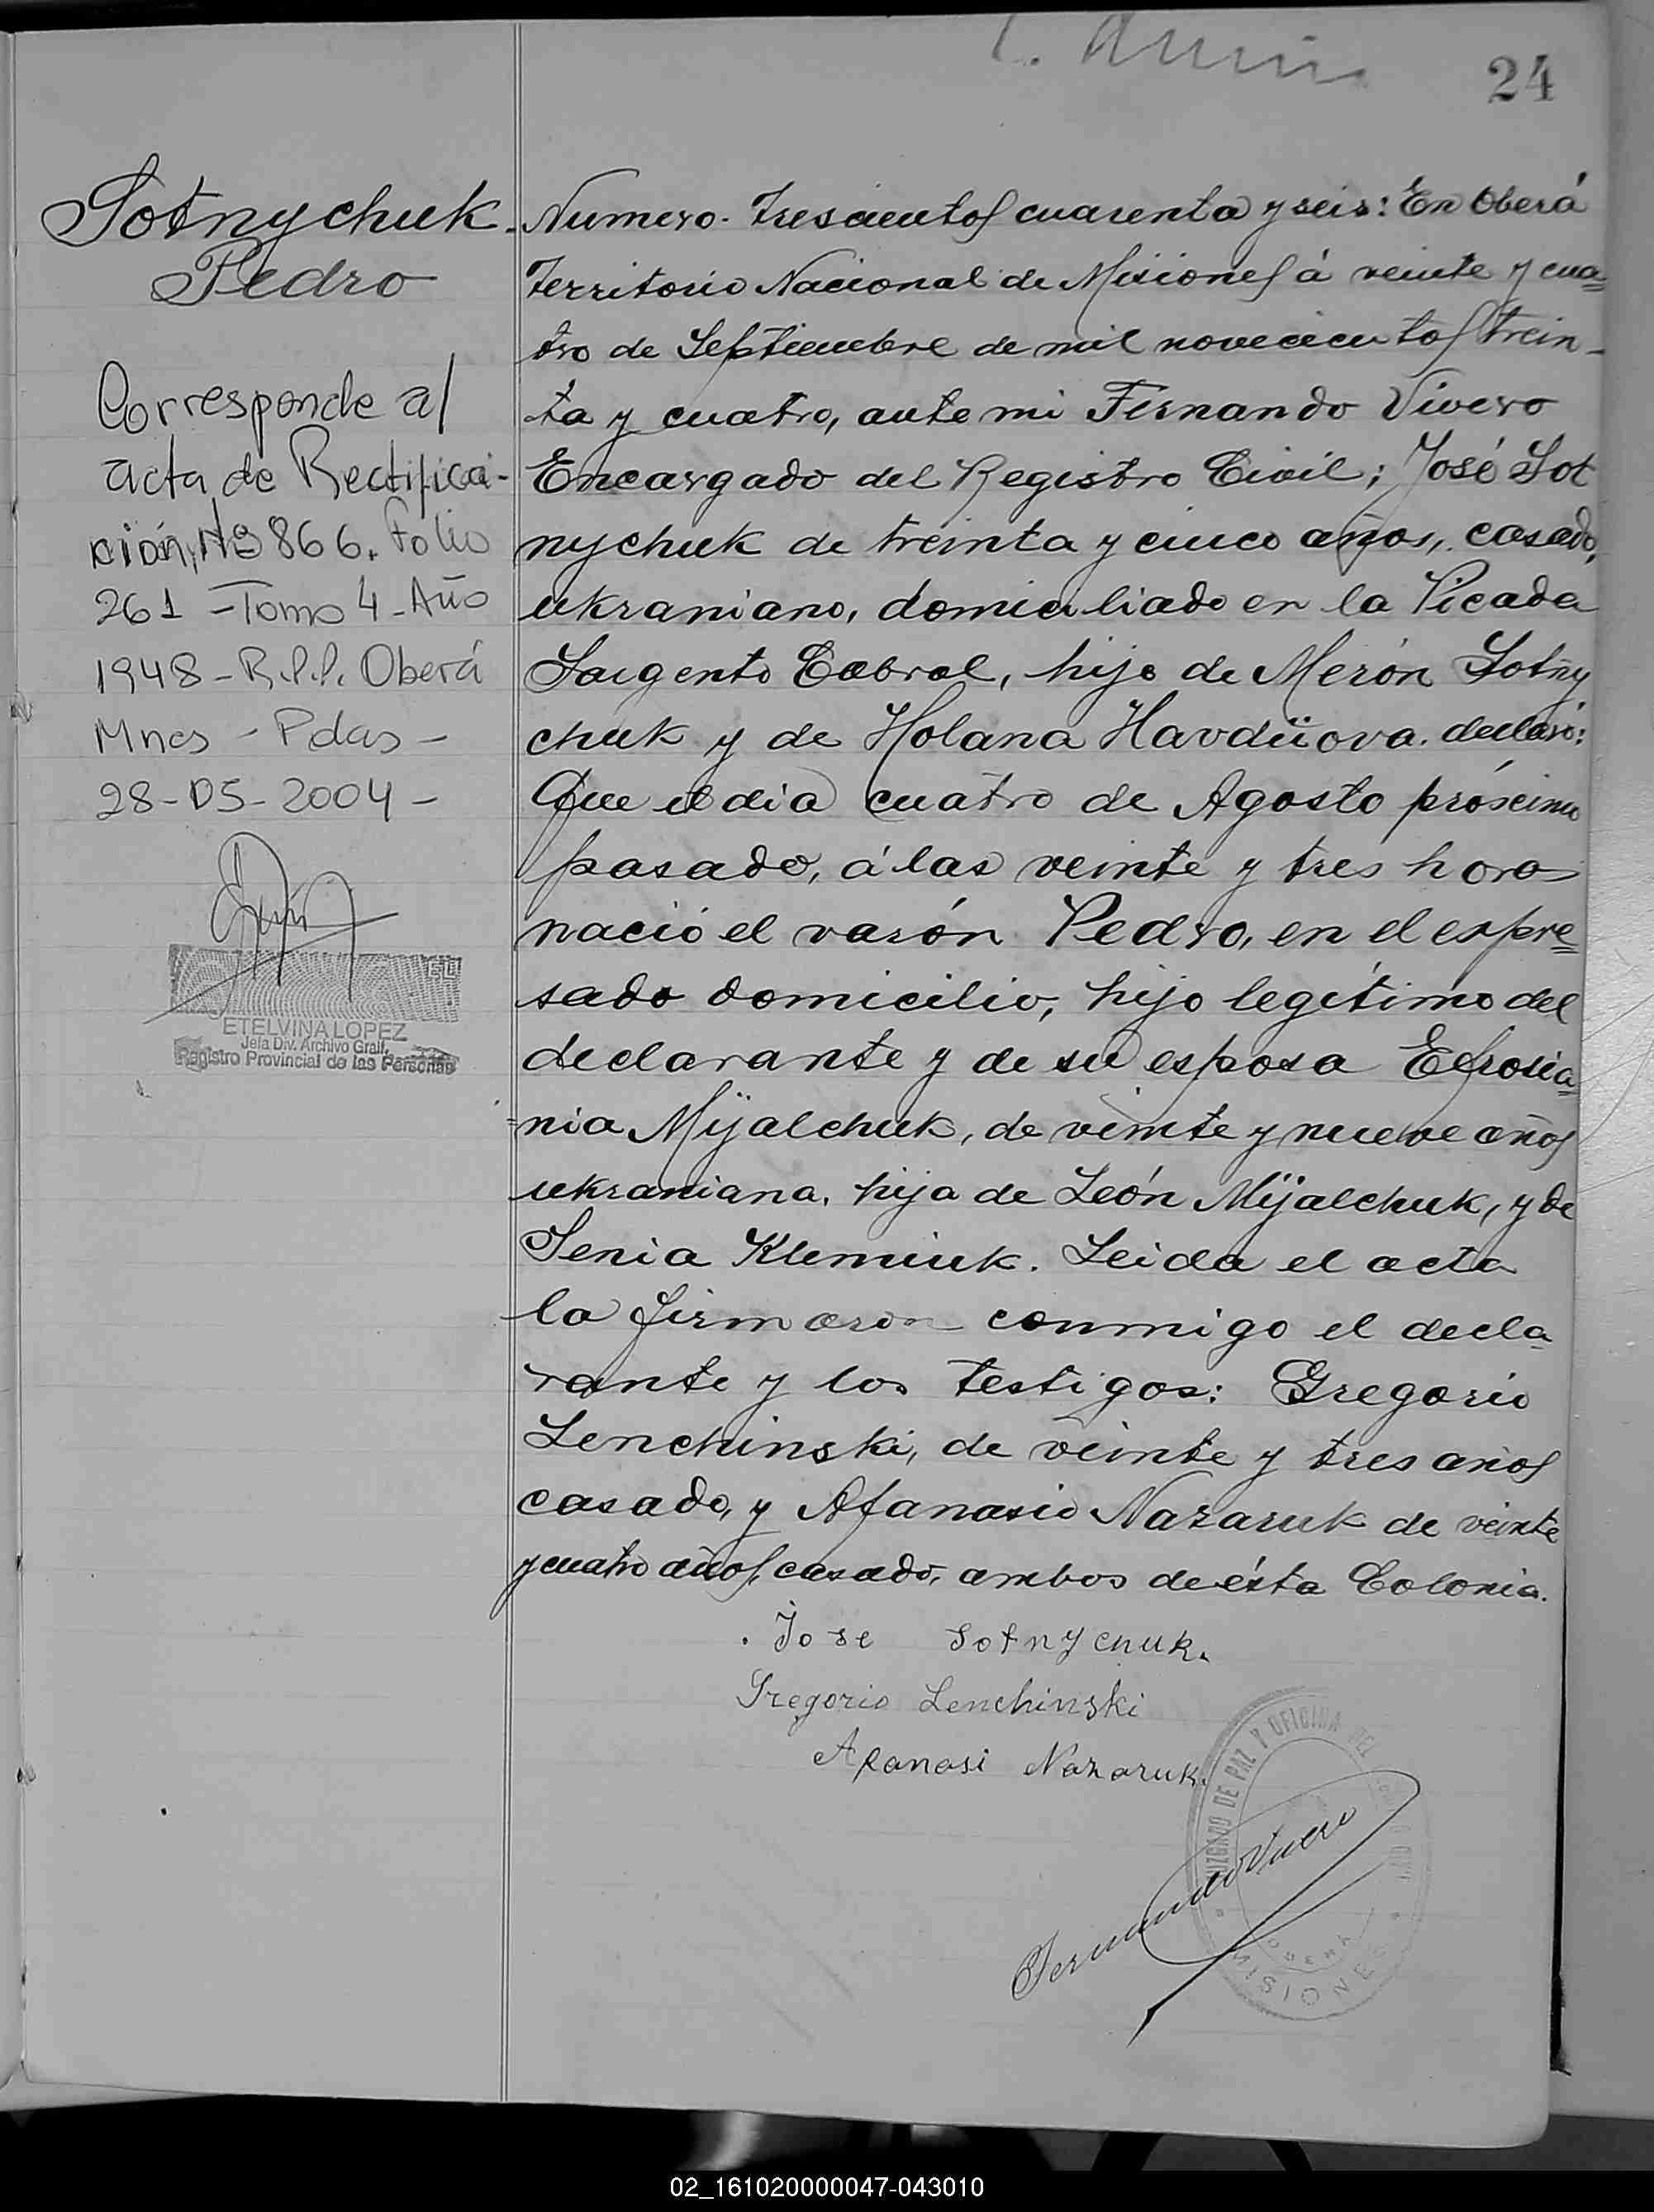 24
Sotnychuk.
Pedro
Corresponde al
acta de Rectifica-
ción, Nº 866. Folio
261 - Tomo 4 - Año
1948 - R.P.P. Oberá
Mnes - Pdas -
28-05-2004 -
ETELVINA LOPEZ
Jefa Div. Archivo Gral.
Registro Provincial de las Personas
Numero. Trescientos cuarenta y seis: En Oberá
Territorio Nacional de Misiones á veinte y cua=
tro de Septiembre de mil novecientos trein-
ta y cuatro, ante mi Fernando Vivero
Encargado del Registro Civil; José Sot
nychuk de treinta y cinco años, casado,
ukraniano, domiciliado en la Picada
Sargento Cabral, hijo de Merón Sotny
chuk y de Holana Havdüova. declaró:
Que el dia cuatro de Agosto próximo
pasado, á las veinte y tres horas
nació el varón Pedro, en el espre=
sado domicilio, hijo legítimo del
declarante y de su esposa Efrosia=
=nia Mÿalchuk, de veinte y nueve años
ukraniana, hija de León Mÿalchuk, y de
Senia Klemiuk. Leida el acta
la firmaron conmigo el decla-
rante y los testigos: Gregorio
Lenchinski, de veinte y tres años
casado, y Afanasio Nazaruk de veinte
y cuatro años, casado, ambos de ésta Colonia.
Jose Sotnychuk.
Gregorio Lenchinski
Afanasi Nazaruk.
JUZGADO DE PAZ Y OFICINA DEL
OBERA
MISIONES
Fernando Vivero
02_161020000047-043010